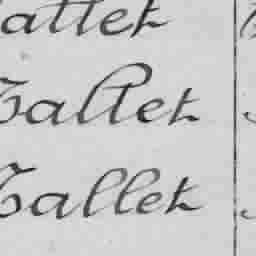 allet
Tallet
Tallet